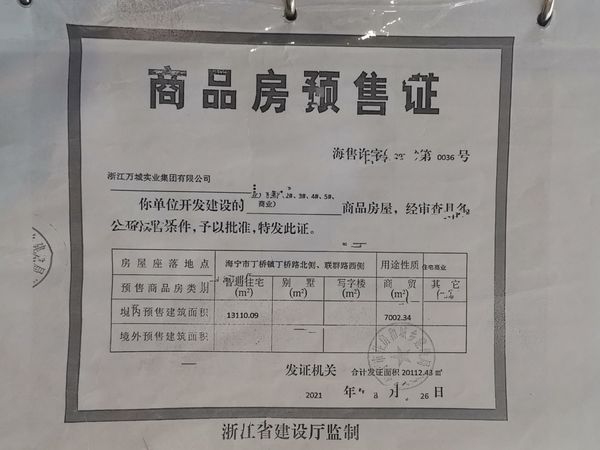 商品房预售证
海售许字( 第 0036 号
浙江万城实业集团有限公司
2#、3#、4#、5#、
你单位开发建设的 商业) 商品房屋,经审查具备
公 售条件,予以批准,特发此证。
房屋座落地点 海宁市丁桥镇丁桥路北侧、联群路西侧 用途性质 住宅商业
预售商品房类别 普通住宅(m²) 别墅(m²) 写字楼(m²) 商贸(m²) 其它
境内预售建筑面积 13110.09 7002.34
境外预售建筑面积
发证机关 合计发证面积 20112.43 ㎡
2021 年 8 月 26 日
浙江省建设厅监制